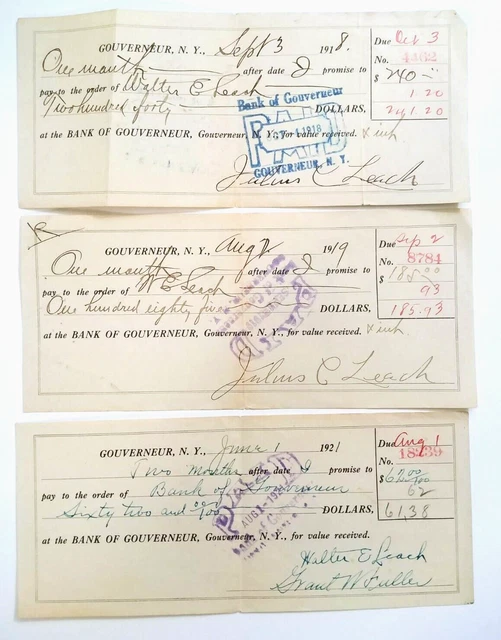 GOUVERNEUR, N. Y., Sept 3 1918. Due Oct 3
One month after date I promise to No. 4462
pay to the order of Walter E Leach $ 240.-
Two hundred forty DOLLARS, 1 20
241.20
at the BANK OF GOUVERNEUR, Gouverneur, N. Y., for value received. & int
Bank of Gouverneur
PAID
1 1918
GOUVERNEUR, N. Y.
Julius C Leach
GOUVERNEUR, N. Y., Aug 2 1919 Due Sep 2
One month after date I promise to No. 8784
pay to the order of W E Leach $ 185.00
One hundred eighty five DOLLARS, 93
185.93
at the BANK OF GOUVERNEUR, Gouverneur, N. Y., for value received. & int
PAID
Julius C Leach
GOUVERNEUR, N. Y., June 1 1921 Due Aug 1
Two months after date I promise to No. 18239
pay to the order of Bank of Gouverneur $ 62.00
Sixty two and 00/100 DOLLARS, 62
61,38
at the BANK OF GOUVERNEUR, Gouverneur, N. Y., for value received.
PAID
AUG 1-1921
Walter E Leach
Grant W Fuller